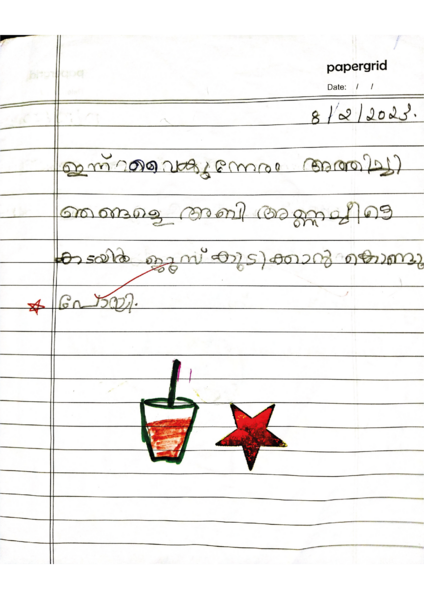 papergrid
Date: / /
8/2/2023.
ഇന്ന് വൈകുന്നേരം അത്തിച്ചി
ഞങ്ങളെ അബി അണ്ണച്ചീടെ
കടയിൽ ജൂസ് കുടിക്കാൻ കൊണ്ടു
പോയി.